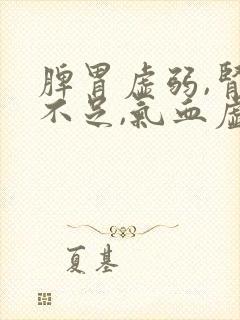 脾胃虛弱,腎
不足,氣血虛
夏基